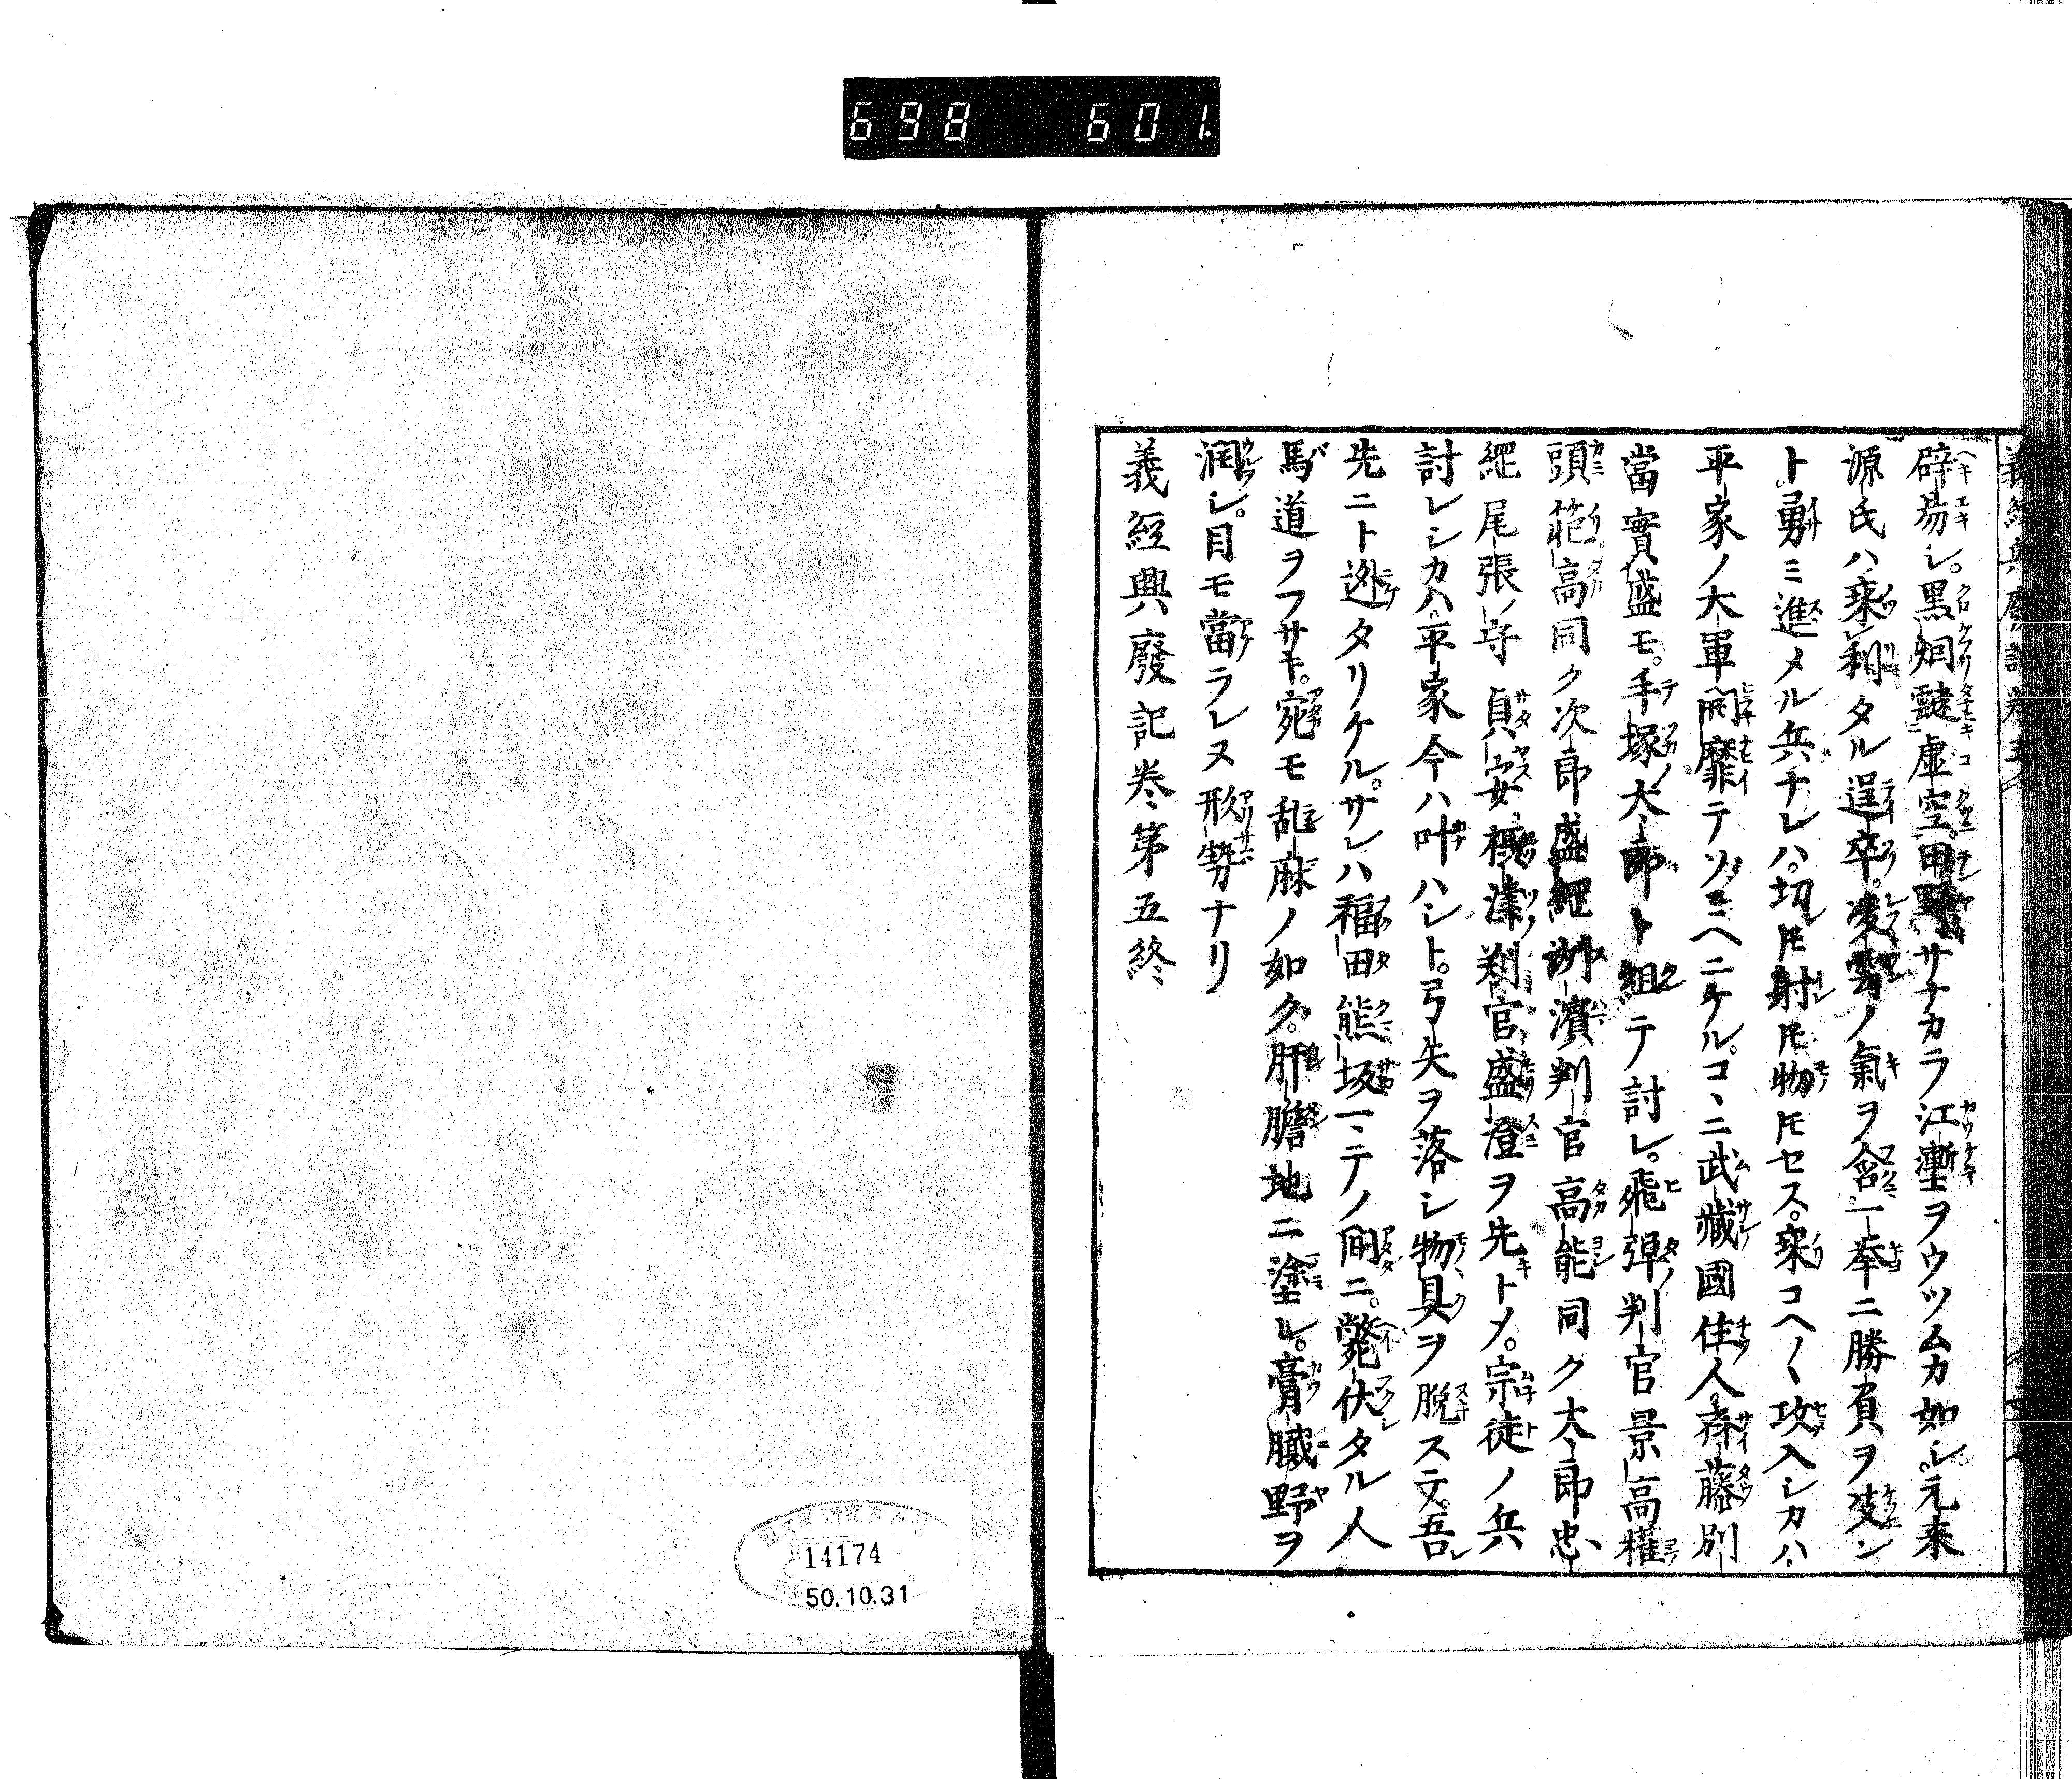 698 601.
辟易シ。黒烟靆虚空。田野サナカラ江漸ヲウツムカ如シ。元来
源氏ハ乗利タル逞卒。凌雲ノ氣ヲ含一挙ニ勝負ヲ決ン
ト勇ミ進メル兵ナレハ。切レ𪜈射レ𪜈物𪜈セス。乗コヘ〱攻入シカハ
平家ノ大軍開靡テソミヘニケル。コヽニ武藏國住人。斉藤別
當實盛モ。手塚太郎ト組テ討レ。飛弾判官景高権
頭範高同ク次郎盛綱瀬濱判官高能同ク太郎忠
綱尾張守貞安摂津判官盛澄ヲ先トメ。宗徒ノ兵
討レシカハ平家今ハ叶ハシト。弓矢ヲ落シ物具ヲ脱ステ吾
先ニト迯タリケル。サレハ福田熊坂ニテノ間ニ。斃伏タル人
馬道ヲフサキ。宛モ乱麻ノ如ク。肝膽地ニ塗レ。膏膩野ヲ
潤シ。目モ當ラレヌ形勢ナリ
義經興廢記巻第五終
14174
50.10.31